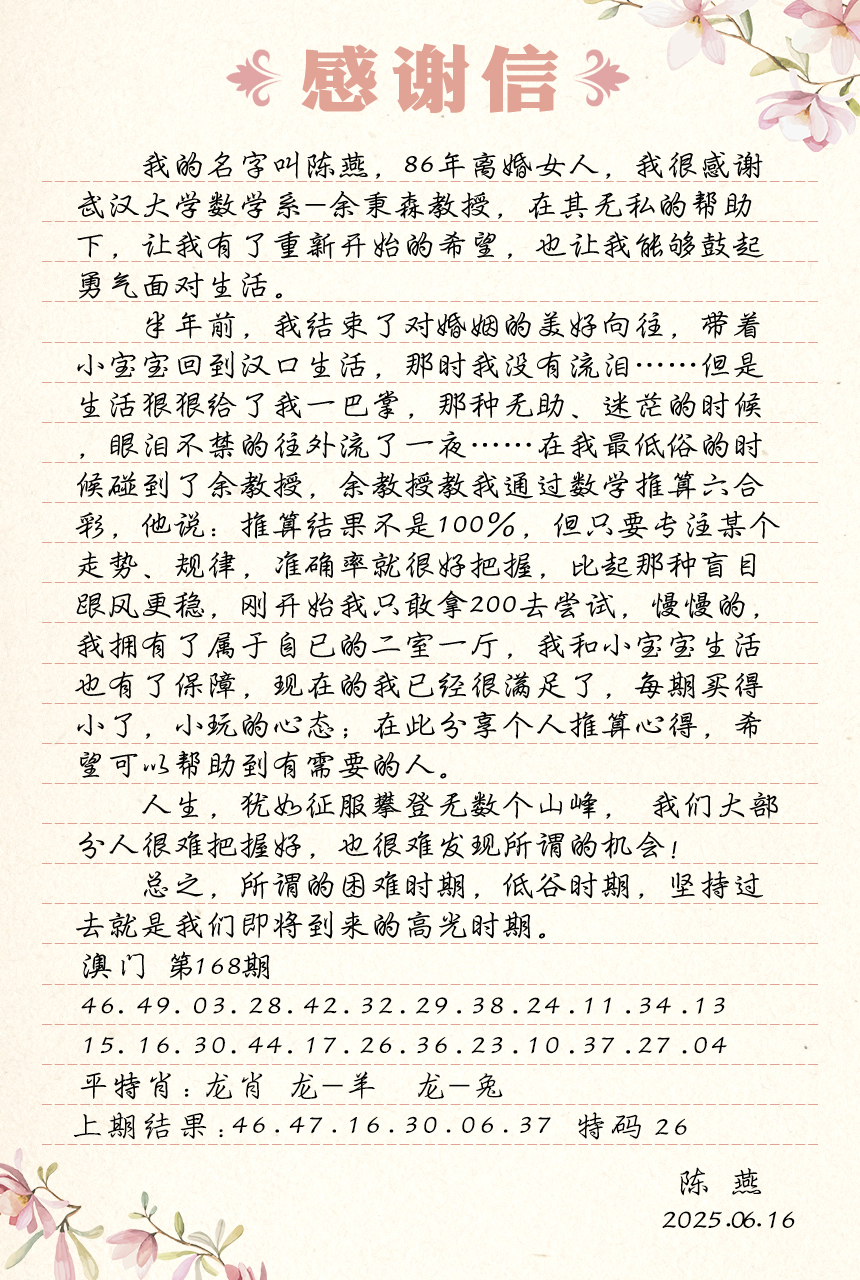 感谢信
我的名字叫陈燕，86年离婚女人，我很感谢
武汉大学数学系—余秉森教授，在其无私的帮助
下，让我有了重新开始的希望，也让我能够鼓起
勇气面对生活。
半年前，我结束了对婚姻的美好向往，带着
小宝宝回到汉口生活，那时我没有流泪……但是
生活狠狠给了我一巴掌，那种无助、迷茫的时候
，眼泪不禁的往外流了一夜……在我最低俗的时
候碰到了余教授，余教授教我通过数学推算六合
彩，他说：推算结果不是100%，但只要专注某个
走势、规律，准确率就很好把握，比起那种盲目
跟风更稳，刚开始我只敢拿200去尝试，慢慢的，
我拥有了属于自已的二室一厅，我和小宝宝生活
也有了保障，现在的我已经很满足了，每期买得
小了，小玩的心态；在此分享个人推算心得，希
望可以帮助到有需要的人。
人生，犹如征服攀登无数个山峰， 我们大部
分人很难把握好，也很难发现所谓的机会！
总之，所谓的困难时期，低谷时期，坚持过
去就是我们即将到来的高光时期。
澳门 第168期
46.49.03.28.42.32.29.38.24.11.34.13
15.16.30.44.17.26.36.23.10.37.27.04
平特肖：龙肖 龙—羊 龙—兔
上期结果：46.47.16.30.06.37 特码 26
陈 燕
2025.06.16